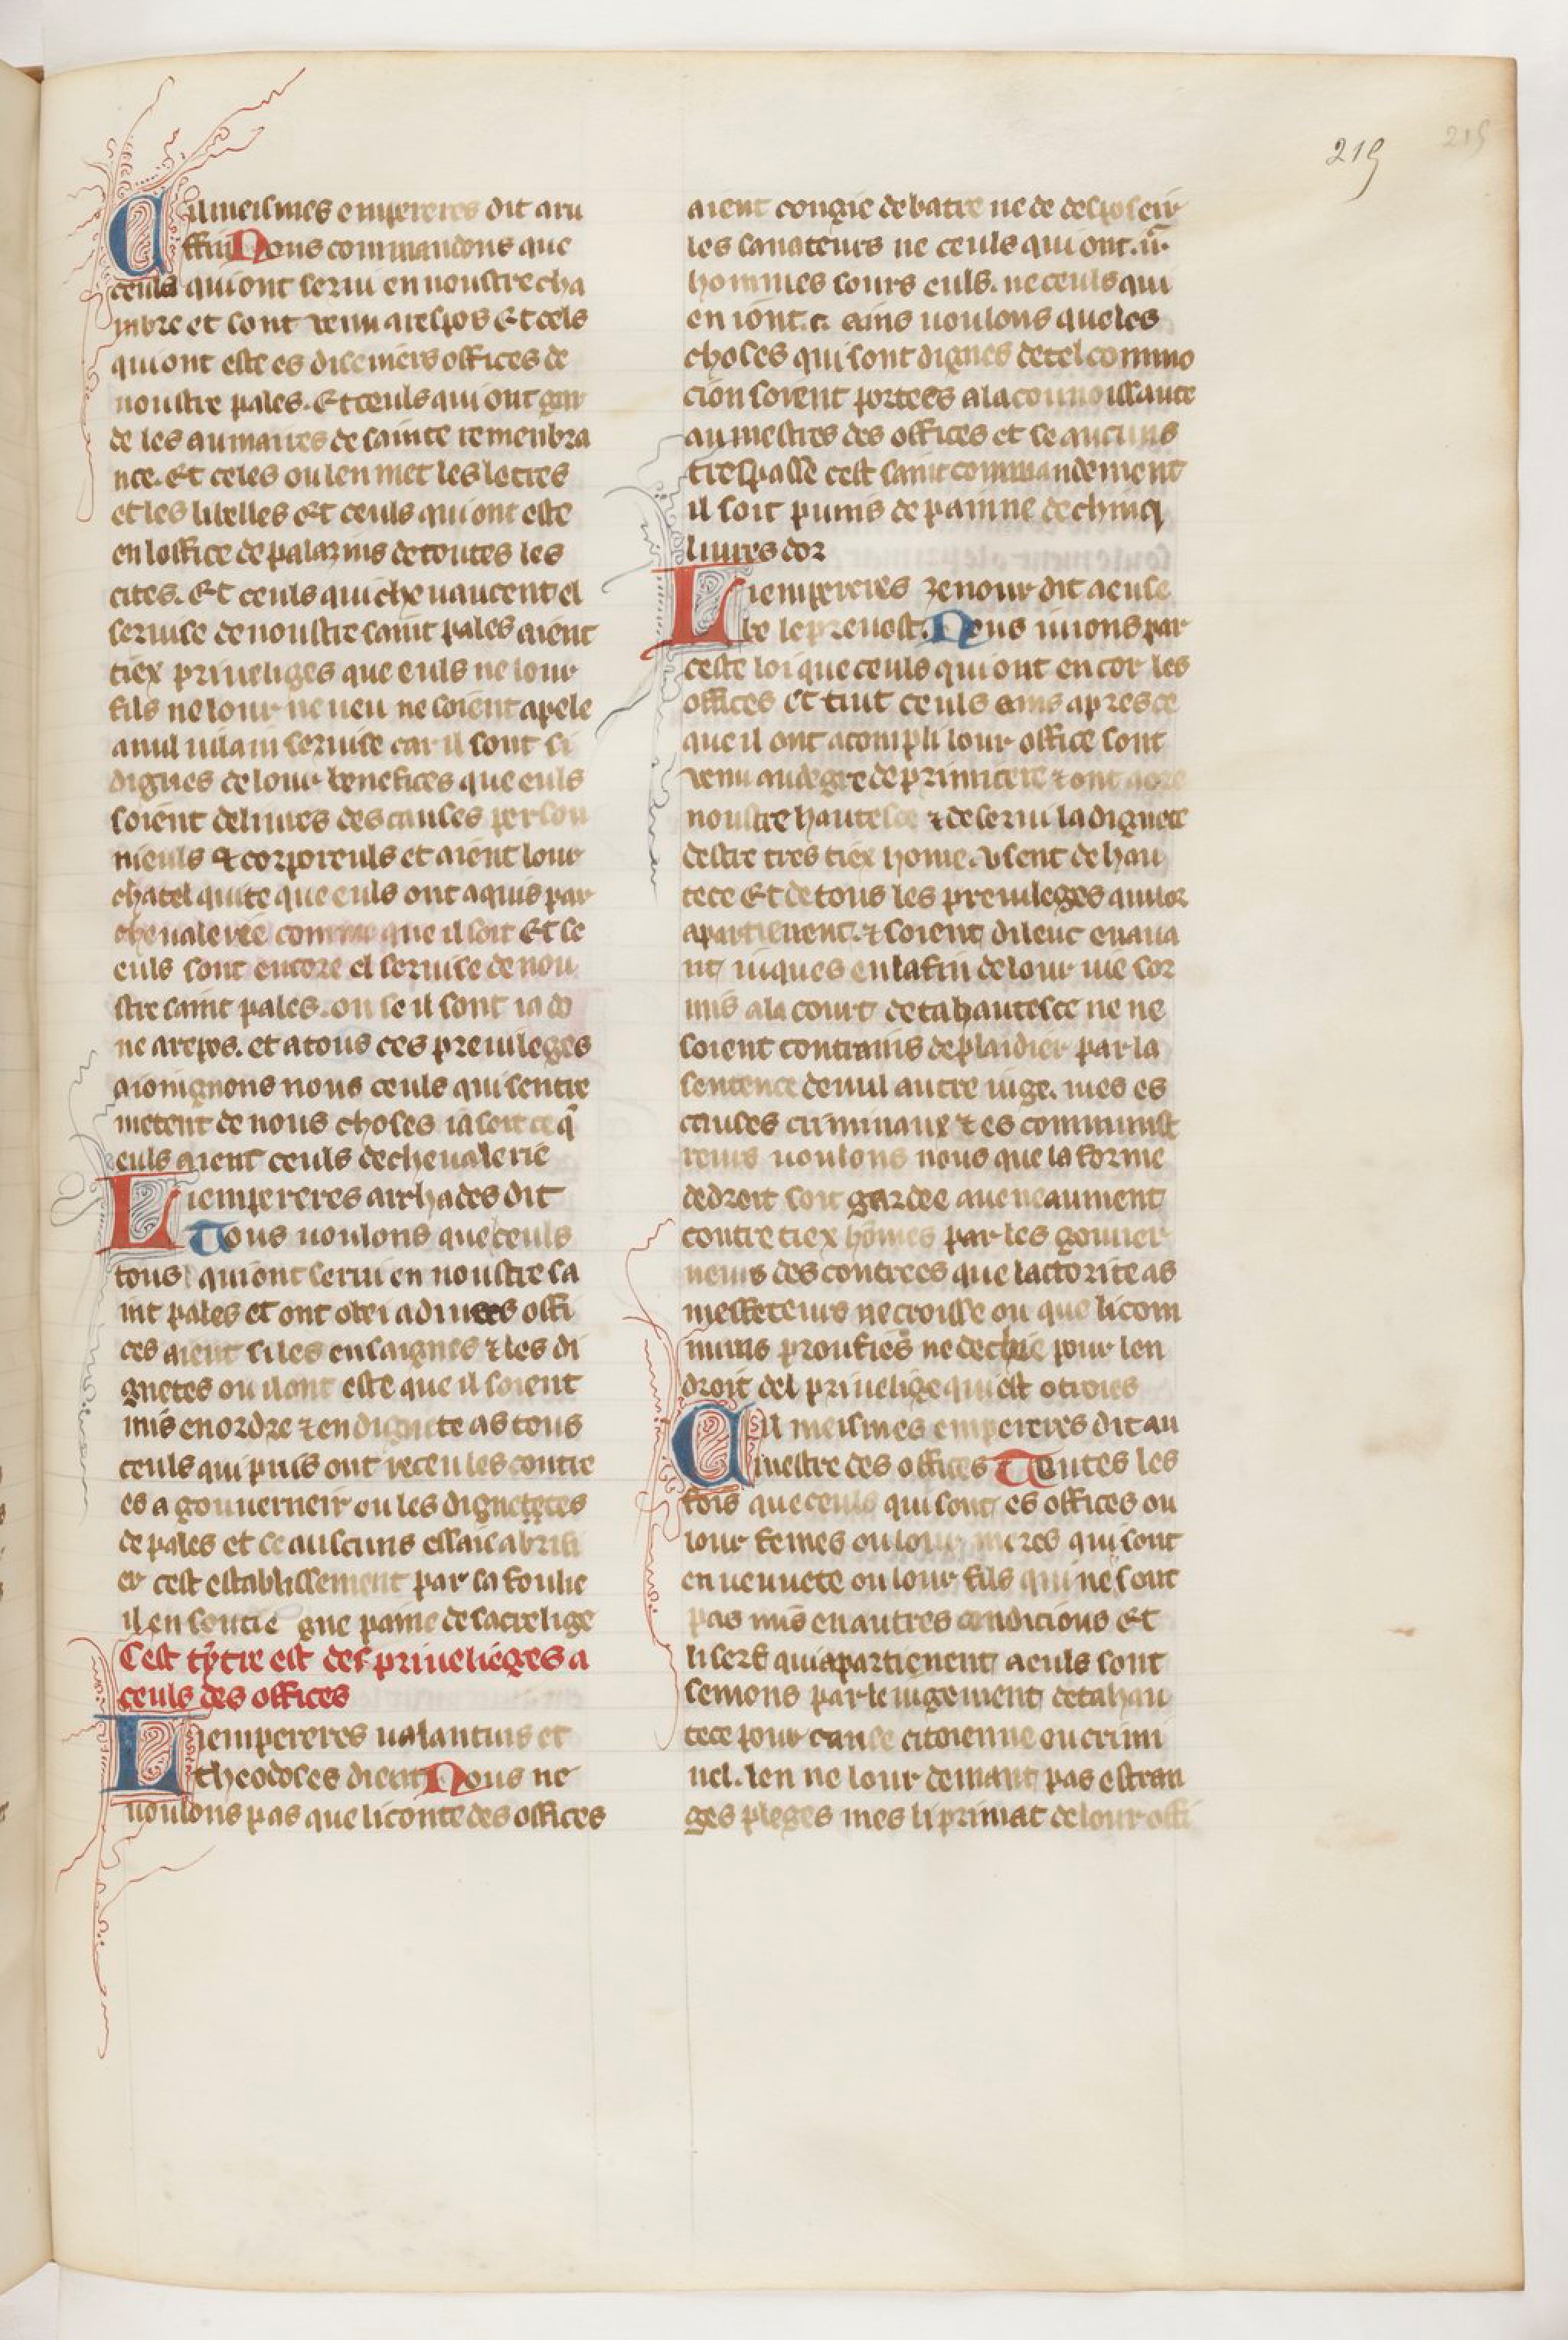 219
215
Cil meismes empereres dit a ru
ffin Nous commandons que
ceuls qui ont serui en noustre cha
mbre et sont venu a respos Et cels
qui ont este es diseniers offices de
noustre pales. Et ceuls qui ont gar
de les aumaires de sainte remenbra
nce. Et celes ou len met les letres
et les libelles Et ceuls qui ont este
en loffice de palazins de toutes les
cites. Et ceuls qui cheuaucent el
seruise de noustre saint pales aient
tiex priueliges que euls ne lour
fils ne lour neueu ne soient apele
a nul uilain seruise car il sont si
dignes de lour benefices que euls
soient deliures des causes person
nieuls et corporeuls et aient lour
chatel quite que euls ont aquis par
cheualerie comme que il soit Et se
euls sont encore el seruise de nou
stre saint pales. ou se il sont ia do
ne a repos. et a tous ces preuileges
aioingnons nous ceuls qui sentre
metent de nous choses ia soit ce q̄
euls aient ceuls de cheualerie
Li empereres archades dit
Tous uoulons que ceuls
tous qui ont serui en noustre sa
int pales et ont obei a diuers offi
ces aient si les ensaignes ⁊ les di
gnetes ou il ont este que il soient
mis en ordre ⁊ en dignete as tous
ceuls qui puis ont receu les contre
es a gouuerneir ou les dignetetes
de pales et se auscuns essaie a brisi
er cest establissement par sa foulie
il en soutie gne paine de sacrelige
Cest tytre est des priuelieges a
ceuls des offices
Li empereres ualantins et
theodoses dient Nous ne
uoulons pas que li conte des offices
aient congie de batre ne de desposeir
les sanateurs ne ceuls qui ont .ii.
hommes sours euls. ne ceuls qui
en iont .c. ains uoulons que les
choses qui sont dignes de tel commo
cion soient portees a la connoissance
au mestres des offices et se aucuns
trespasse cest saint commandement
il soit punis de painne de chinq
liures dor
Li empereres zenour dit a euse
be le preuost. Nous iuions par
ceste loi que ceuls qui ont encor les
offices et tuit ceuls ains apres ce
que il ont acompli lour office sont
venu au degre de primicere ⁊ ont aore
noustre hautesce ⁊ deserui la dignete
destre tres tiex home. usent de hau
tece Et de tous les preuileges qui lor
apartienent. ⁊ soient dileuc en aua
nt iuques en la fin de lour uie sor
mis a la court de ta hautesce ne ne
soient contrains de plaidier par la
sentence de nul autre iuge. mes es
causes criminaux ⁊ es communist
reurs uoulons nous que la forme
de droit soit gardee aueneaument
contre tiex hōmes par les gouuer
neurs des contrees que lactorite as
meffeteurs ne croisse ou que li com
muns proufies ne dechie pour len
droit del priuelige qui est otroies
Cil meismes empereres dit au
mestre des offices Toutes les
fois que ceuls qui sont es offices ou
lour femes ou lour meres qui sont
en ueuuete ou lour fils qui ne sont
pas mis en autres condicions Et
li serf qui apartienent a euls sont
semons par le iugement de ta hau
tece pour cause citoienne ou crimi
nel. len ne lour demant pas estran
ges pleges mes li primat de lour offi